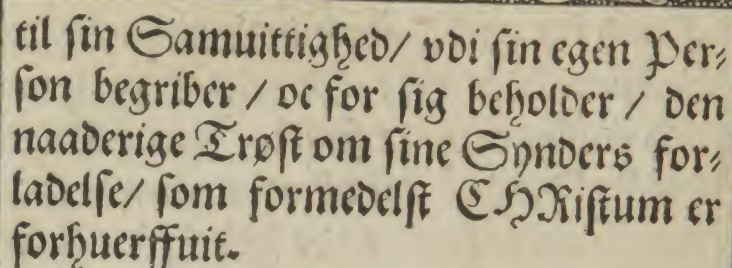 til sin Samuittighed/ vdi sin egen Per⸗
son begriber / oc for sig beholder / den
naaderige Trøst om sine Synders for⸗
ladelse/ som formedelst CHRistum er
forhuerffuit.